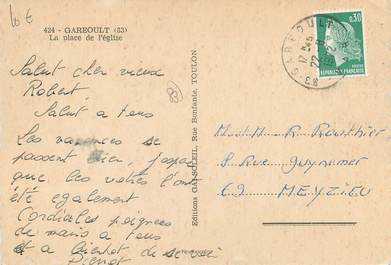 10€
424 - GAREOULT (83)
La place de l'église
Salut cher vieux
Robert,
Salut a tous
Les vacances se
passent bien, j'espère
que les vôtres l'ont
été egalement
Cordiales poignées
de mains a tous
et a bientot de se voir
Pierrot
83
Editions GAI-SOLEIL, Rue Bonfante, TOULON
GAREOULT
17 H 45
22 - 8
1972
0,30
POSTES
REPUBLIQUE FRANÇAISE
M et M R.
5 Rue Guynemer
69 MEYZIEU